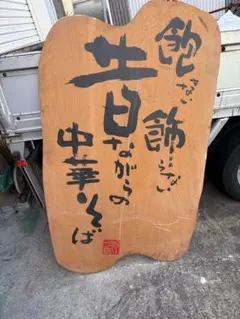 飽きない
飾らない
昔ながらの
中華そば